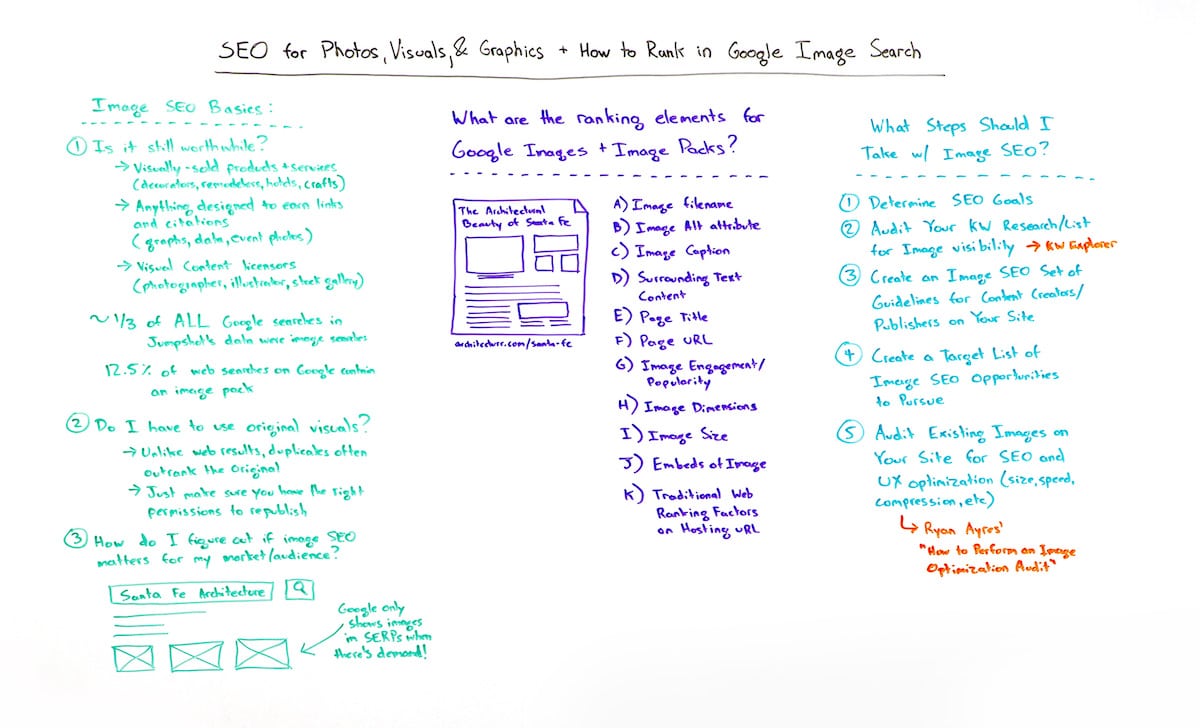 SEO for Photos, Visuals, & Graphics + How to Rank in Google Image Search
Image SEO Basics:
① Is it still worthwhile?
→ Visually-sold products + services
(decorators, remodelers, hotels, crafts)
→ Anything designed to earn links
and citations
(graphs, data, event photos)
→ Visual Content licensors
(photographer, illustrator, stock gallery)
~1/3 of ALL Google searches in
Jumpshot's data were image searches
12.5% of web searches on Google contain
an image pack
② Do I have to use original visuals?
→ Unlike web results, duplicates often
outrank the original
→ Just make sure you have the right
permissions to republish
③ How do I figure out if image SEO
matters for my market/audience?
Santa Fe Architecture
Google only
shows images
in SERPs when
there's demand!
What are the ranking elements for
Google Images + Image Packs?
The Architectural
Beauty of Santa Fe
architecture.com/santa-fe
A) Image filename
B) Image Alt attribute
C) Image Caption
D) Surrounding Text
Content
E) Page Title
F) Page URL
G) Image Engagement/
Popularity
H) Image Dimensions
I) Image Size
J) Embeds of Image
K) Traditional Web
Ranking Factors
on Hosting URL
What Steps Should I
Take w/ Image SEO?
① Determine SEO Goals
② Audit Your KW Research/List
for Image visibility → KW Explorer
③ Create an Image SEO Set of
Guidelines for Content Creators/
Publishers on Your Site
④ Create a Target List of
Image SEO Opportunities
to Pursue
⑤ Audit Existing Images on
Your Site for SEO and
UX optimization (size, speed,
compression, etc)
↳ Ryan Ayres'
"How to Perform an Image
Optimization Audit"